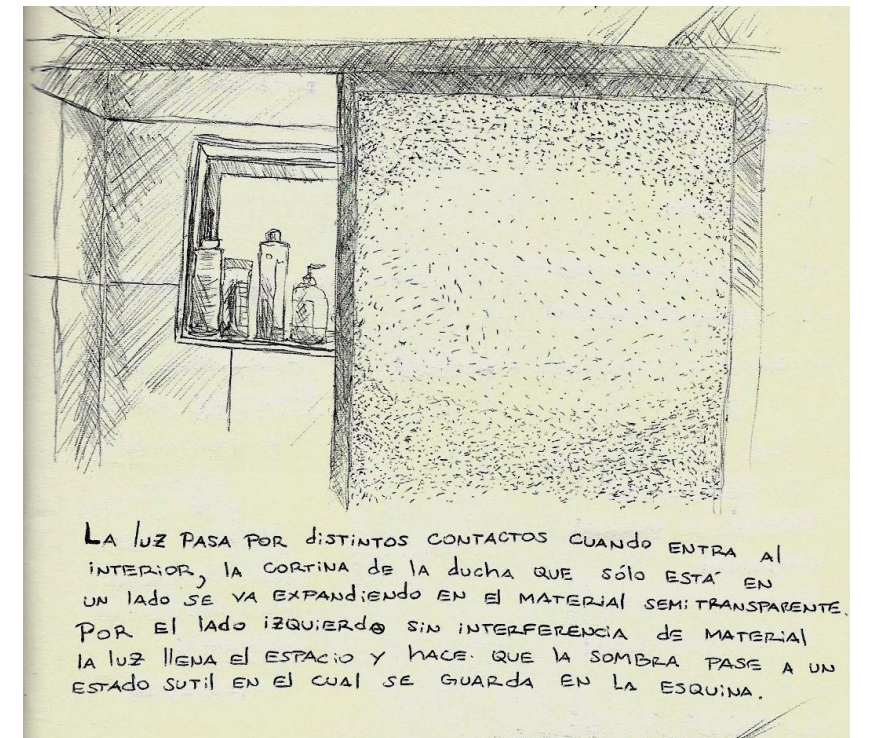 La luz pasa por distintos contactos cuando entra al
interior, la cortina de la ducha que sólo está en
un lado se va expandiendo en el material semitransparente.
Por el lado izquierdo sin interferencia de material
la luz llena el espacio y hace. que la sombra pase a un
estado sutil en el cual se guarda en la esquina.